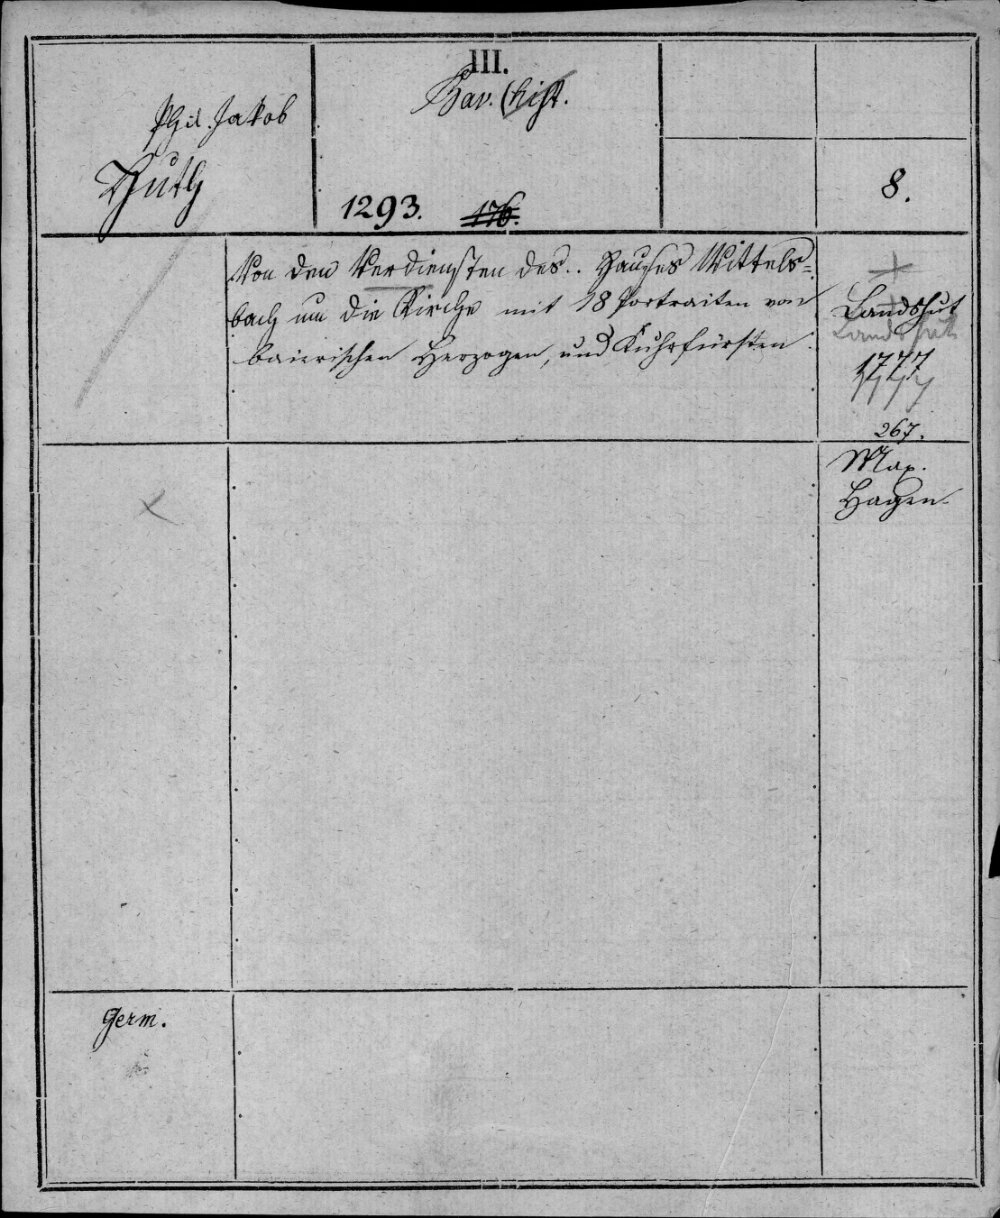 III.
Bav. Hist.
Phil. Jakob
Huth
1293. 176.
8.
Von den Verdiensten des.. Hauses Wittels=
bach um die Kirche mit 18 Portraiten von
baierischen Herzogen, und Kuhrfürsten
Landshut
Landshut
1777
1777
267.
Max.
Hagen.
Germ.